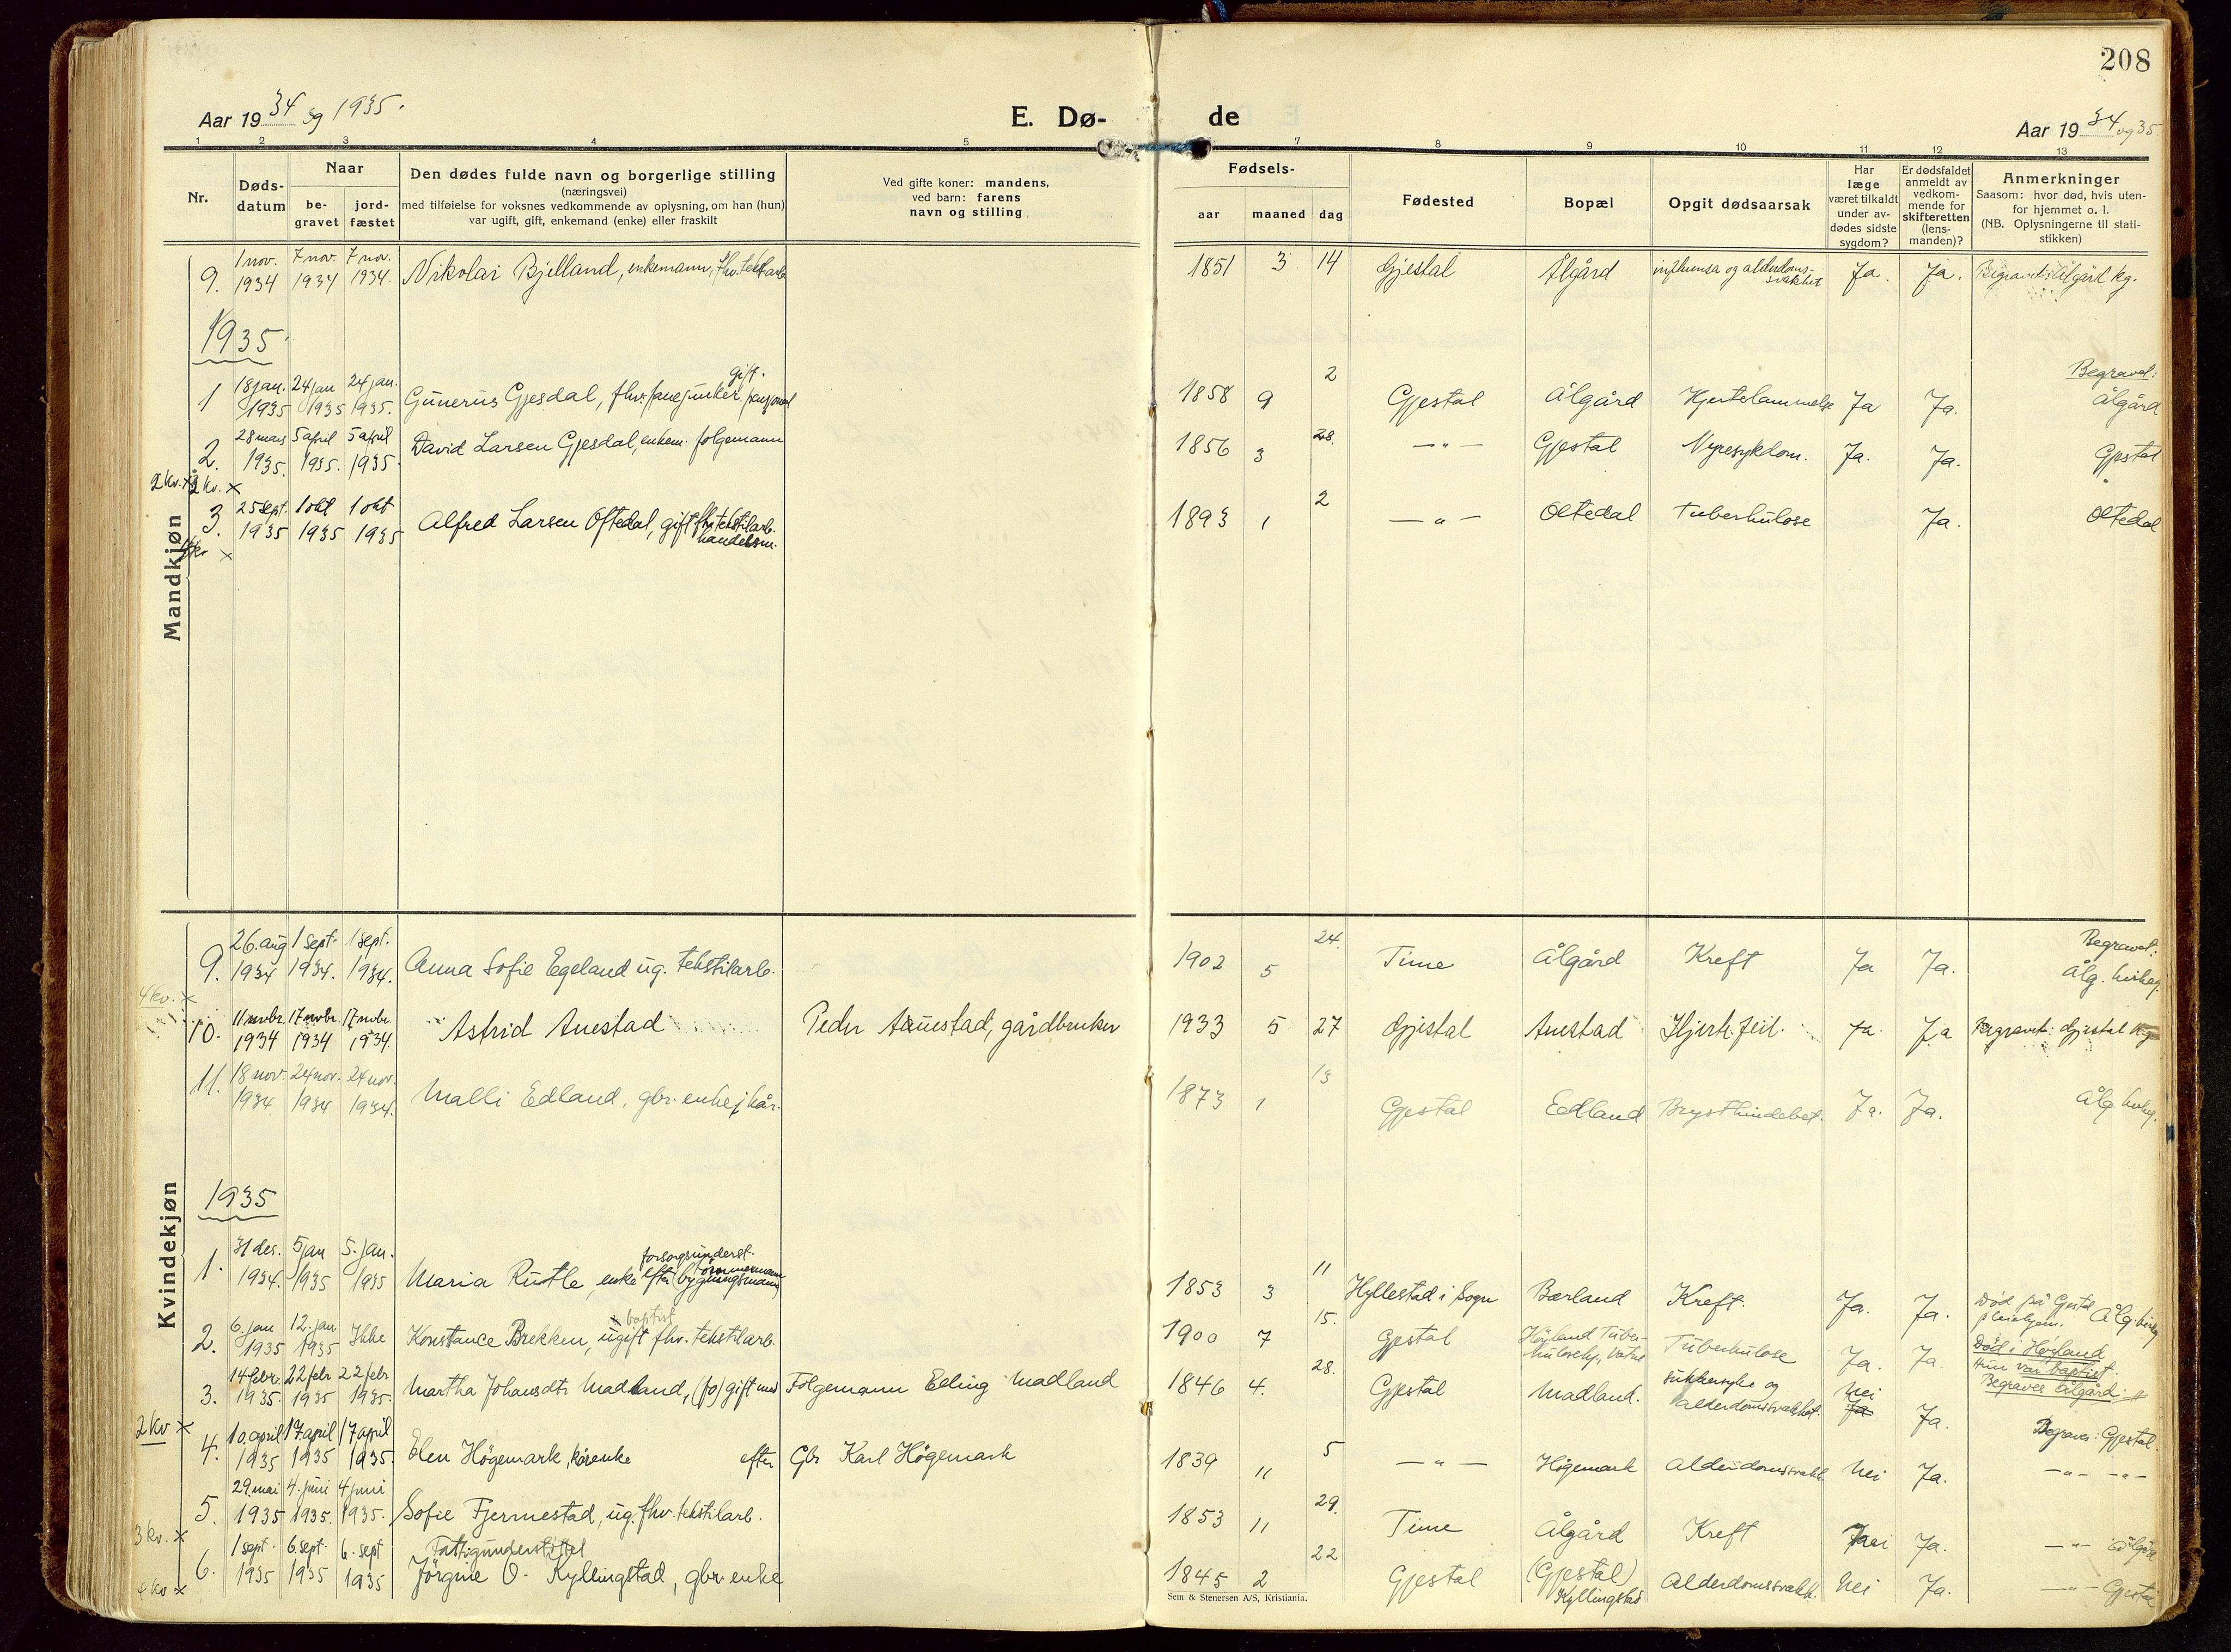 208
Aar 1934 og 1935.
E. Dø-
de
Aar 1934 og 35.
1 2 3 4 5 7 8 9 10 11 12 13
Nr.
Døds-
datum
Naar
be-
gravet
jord-
fæstet
Den dødes fulde navn og borgerlige stilling
(næringsvei)
med tilføielse for voksnes vedkommende av oplysning, om han (hun)
var ugift, gift, enkemand (enke) eller fraskilt
Ved gifte koner: mandens,
ved barn: farens
navn og stilling
Fødsels-
aar maaned dag
Fødested
Bopæl
Opgit dødsaarsak
Har
læge
været tilkaldt
under av-
dødes sidste
sygdom?
Er dødsfaldet
anmeldt av
vedkom-
mende for
skifteretten
(lens-
manden)?
Anmerkninger
Saasom: hvor død, hvis uten-
for hjemmet o. l.
(NB. Oplysningerne til stati-
stikken)
Mandkjøn
9. 1 nov. 1934 7 nov. 1934 7 nov. 1934. Nikolai Bjelland, enkemann, fhv. 1851 3 14 Gjestal Ålgård influensa og alderdoms-svakhet Ja. Ja. Begravet: Ålgård kg.
1935
1 18 jan. 1935 24 jan 1935 24 jan. 1935. Gunerus Gjesdal, fhv. gift. 1858 9 2 Gjestal Ålgård Hjertelammelse Ja Ja. Begravet: Ålgård
2. 28 mars 1935. 5 april 1935. 5 april 1935. David Larsen Gjesdal, enkem. folgemann 1856 3 28. —"— Gjestal Nyresykdom. Ja. Ja. Gjestal
2 kv. x 2 kv. x
3. 25 sept. 1935 1 okt 1935 1 okt 1935 Alfred Larsen Oftedal, gift fhv. tekstilarb. handelsm. 1893 1 2 —"— Oltedal Tuberkulose Ja. Oltedal
4 kv x
Kvindekjøn
9. 26. aug 1934 1 sept. 1934. 1 sept. 1934. Anna Sofie Egeland ug. tekstilarb. 1902 5 24. Time Ålgård Kreft Ja Ja. Begravet: Ålg. kirkeg.
4 kv. x
10. 11 novbr. 1934 17 novbr. 1934 17 novbr. 1934. Astrid Auestad Peder Auestad, gårdbruker 1933 5 27 Gjestal Auestad Hjerte.feil. Ja. Ja Begravet: Gjestal kg
11. 18 nov. 1934 24 nov. 1934 24 nov. 1934. Malli Edland, gbr. enke, kår. 1873 1 13 Gjestal Edland Brysthindebet. Ja. Ja. Ålg. kirkeg.
1935
1. 31 des. 1934. 5 jan 1935 5. jan. 1935 Maria Rutle, enke efter forsorgsunderst. bygningsmann 1853 3 11 Hyllestad i Sogn Bærland Kreft. Ja. Ja. Død på Gjestal pleiehjem. Ålg. kirkeg
2. 6. jan 1935 12. jan 1935 Ikke Konstance Brekken, ugift fhv. tekstilarb. x baptist 1900 7 15. Gjestal Høyland Tuber-kulosehj., Vatne Tuberkulose Ja. Ja. Død i Høyland Hun var baptist. Begraves Ålgård.
3. 14 febr. 1935. 22 febr 1935 22 febr 1935. Martha Johansdtr Madland, (fo) gift med Folgemann Elling Madland 1846 4. 28. Gjestal Madland. sukkersyke og alderdomssvakhet. Nei Ja Ja. Begraves: Gjestal.
2 kv x
4. 10. april 1935 17 april 1935 17 april 1935. Elen Högemark, kårenke efter Gbr Karl Högemark 1839 11 5 —"— Högemark Alderdomssvakh. Nei Ja. —"— —"—
5. 29. mai 1935 4. juni 1935. 4 juni 1935. Sofie Fjermestad, ug. fhv. tekstilarb. 1853 11 29. Time Ålgård Kreft Ja. —"— Ålgård
3 kv. x
6. 1 sept. 1935 6. sept. 1935 6. sept 1935 Fattigunderstøttet Jörgine O. Kyllingstad, gbr. enke 1845 2 22 Gjestal (Gjestal) Kyllingstad Alderdomssvakh. Nei Ja. —"— Gjestal
4 kv x
Sem & Stenersen A/S, Kristiania.